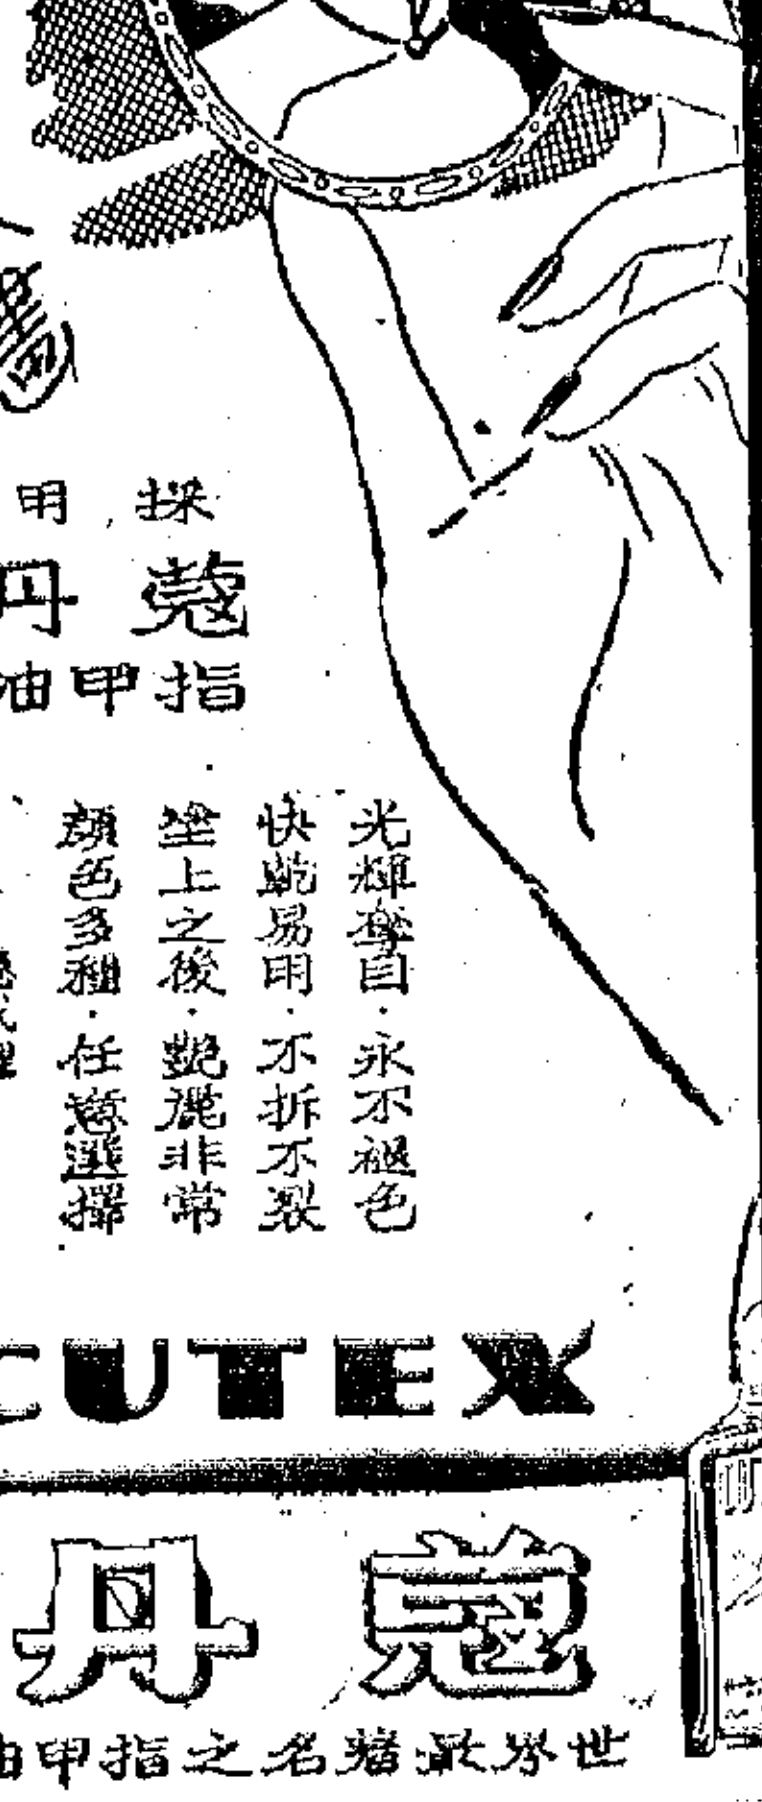 採用
蔻丹
指甲油
光輝奪目·永不褪色
快乾易用·不拆不裂
塗上之後·艷麗非常
顏色多種·任意選擇
CUTEX
蔻丹
世界最著名之指甲油